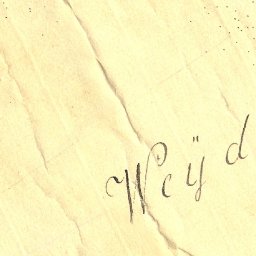 Weÿd